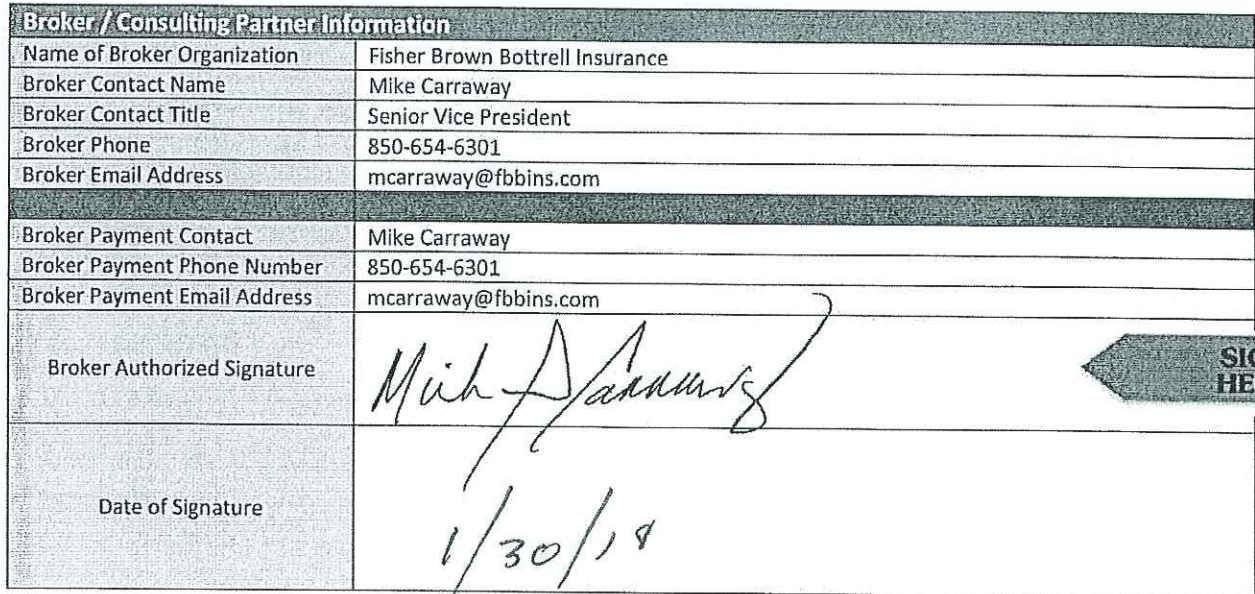 Broker / Consulting Partner Information
Name of Broker Organization Fisher Brown Bottrell Insurance
Broker Contact Name Mike Carraway
Broker Contact Title Senior Vice President
Broker Phone 850-654-6301
Broker Email Address mcarraway@fbbins.com
Broker Payment Contact Mike Carraway
Broker Payment Phone Number 850-654-6301
Broker Payment Email Address mcarraway@fbbins.com
Broker Authorized Signature
SIG
HE
Date of Signature 1/30/18